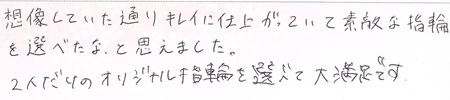 想像していた通りキレイに仕上がっていて素敵な指輪
を選べたな、と思えました。
2人だけのオリジナル指輪を選べて大満足です。